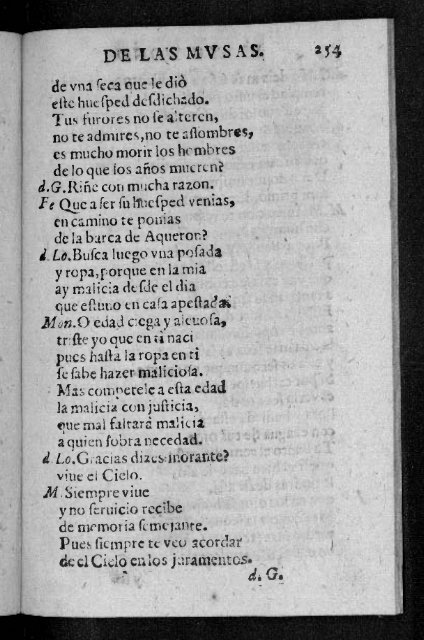 DE LAS MVSAS. 254
de vna seca que le diò
este huesped desdichado.
Tus furores no se alteren,
no te admires, no te assombres,
es mucho morir los hombres
de lo que los años mueren?
d.G. Riñe con mucha razon.
Fe Que a ser su huesped venias,
en camino te ponias
de la barca de Aqueron?
d.Lo. Busca luego vna posada
y ropa, porque en la mia
ay malicia desde el dia
que estuuo en casa apestada.
Mon. O edad ciega y aleuosa,
triste yo que en ti naci
pues hasta la ropa en ti
se sabe hazer maliciosa.
Mas competele a esta edad
la malicia con justicia,
que mal faltarà malicia
a quien sobra necedad.
d.Lo. Gracias dizes inorante?
viue el Cielo.
M. Siempre viue
y no seruicio recibe
de memoria semejante.
Pues siempre te veo acordar
de el Cielo en los juramentos.
d. G.